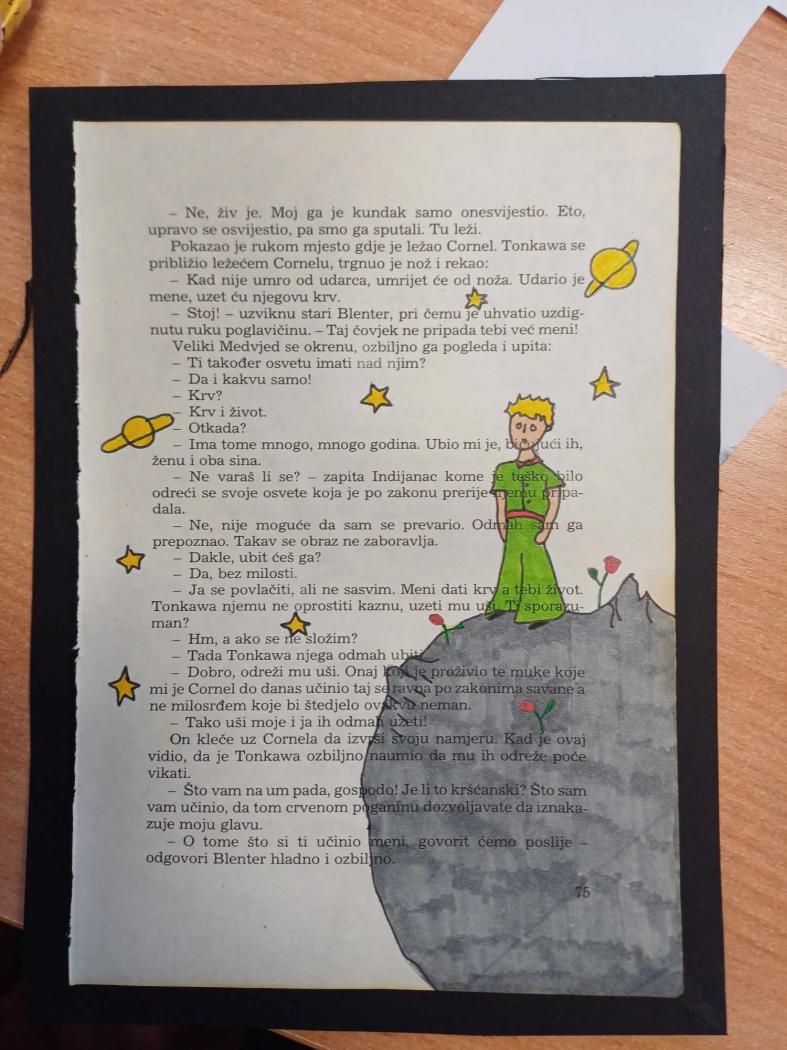 – Ne, živ je. Moj ga je kundak samo onesvijestio. Eto,
upravo se osvijestio, pa smo ga sputali. Tu leži.
Pokazao je rukom mjesto gdje je ležao Cornel. Tonkawa se
približio ležećem Cornelu, trgnuo je nož i rekao:
– Kad nije umro od udarca, umrijet će od noža. Udario je
mene, uzet ću njegovu krv.
– Stoj! – uzviknu stari Blenter, pri čemu je uhvatio uzdig-
nutu ruku poglavičinu. – Taj čovjek ne pripada tebi već meni!
Veliki Medvjed se okrenu, ozbiljno ga pogleda i upita:
– Ti također osvetu imati nad njim?
– Da i kakvu samo!
– Krv?
– Krv i život.
– Otkada?
– Ima tome mnogo, mnogo godina. Ubio mi je, bičujući ih,
ženu i oba sina.
– Ne varaš li se? – zapita Indijanac kome je teško bilo
odreći se svoje osvete koja je po zakonu prerije njemu pripa-
dala.
– Ne, nije moguće da sam se prevario. Odmah sam ga
prepoznao. Takav se obraz ne zaboravlja.
– Dakle, ubit ćeš ga?
– Da, bez milosti.
– Ja se povlačiti, ali ne sasvim. Meni dati krv a tebi život.
Tonkawa njemu ne oprostiti kaznu, uzeti mu uši. Ti sporazu-
man?
– Hm, a ako se ne složim?
– Tada Tonkawa njega odmah ubiti.
– Dobro, odreži mu uši. Onaj koji je proživio te muke koje
mi je Cornel do danas učinio taj se ravna po zakonima savane a
ne milosrđem koje bi štedjelo ovakvu neman.
– Tako uši moje i ja ih odmah uzeti!
On kleče uz Cornela da izvrši svoju namjeru. Kad je ovaj
vidio, da je Tonkawa ozbiljno naumio da mu ih odreže poče
vikati.
– Što vam na um pada, gospodo! Je li to kršćanski? Što sam
vam učinio, da tom crvenom poganinu dozvoljavate da iznaka-
zuje moju glavu.
– O tome što si ti učinio meni, govorit ćemo poslije –
odgovori Blenter hladno i ozbiljno.
75